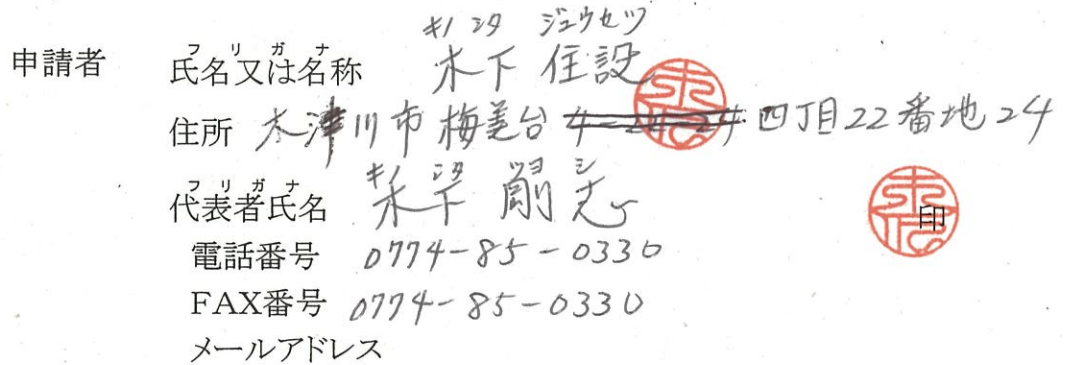 キノシタ ジュウセツ
フリガナ
申請者 氏名又は名称 木下 住設
住所 木津川市梅美台 四丁目22番地24
フリガナ キノ シタ ツヨ シ
代表者氏名 木下 剛志
印
電話番号 0774-85-0330
FAX番号 0774-85-0330
メールアドレス